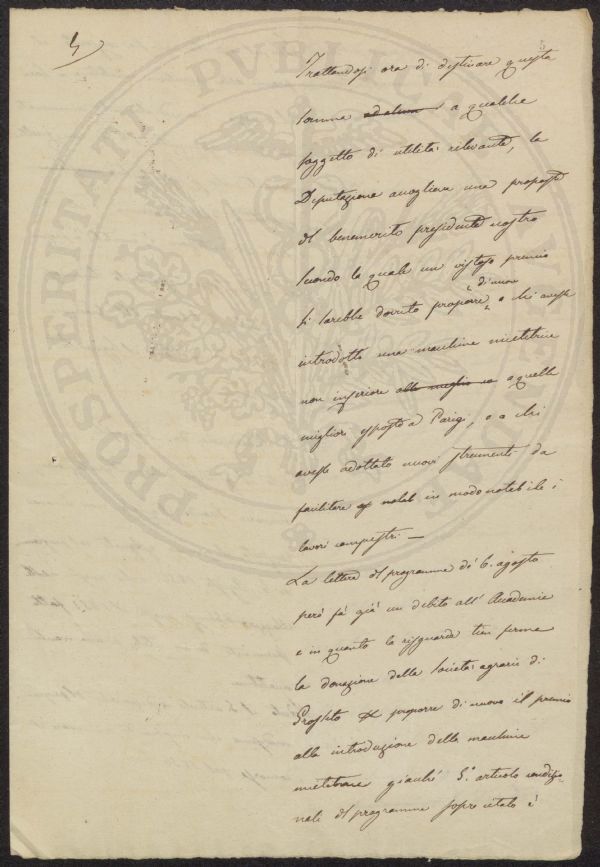 4
Trattandosi ora di destinare questa
somma ad alcun a qualche
soggetto di utilità rilevante, la
Deputazione accogliera una proposta
del benemerito presidente nostro
secondo la quale un vistoso premio
di nuovo
si sarebbe dovuto proporre a chi avesse
introdotto una macchina mietitrice
non inferiore alla meglio a quelle
migliori esposte a Parigi, o a chi
avesse adottato nuovi strumenti da
facilitare notab in modo notabile i
lavori campestri. —
La lettera del programma dei 6. agosto
però fà già un debito all' Accademia
e in quanto la risguarda tien ferma
la donazione della Società agraria di
Grosseto di proporre di nuovo il premio
alla introduzione della macchina
mietitrice giacchè 5.º articolo condizio-
nale del programma sopra citato è
PROSPERITATI PUBLICAE